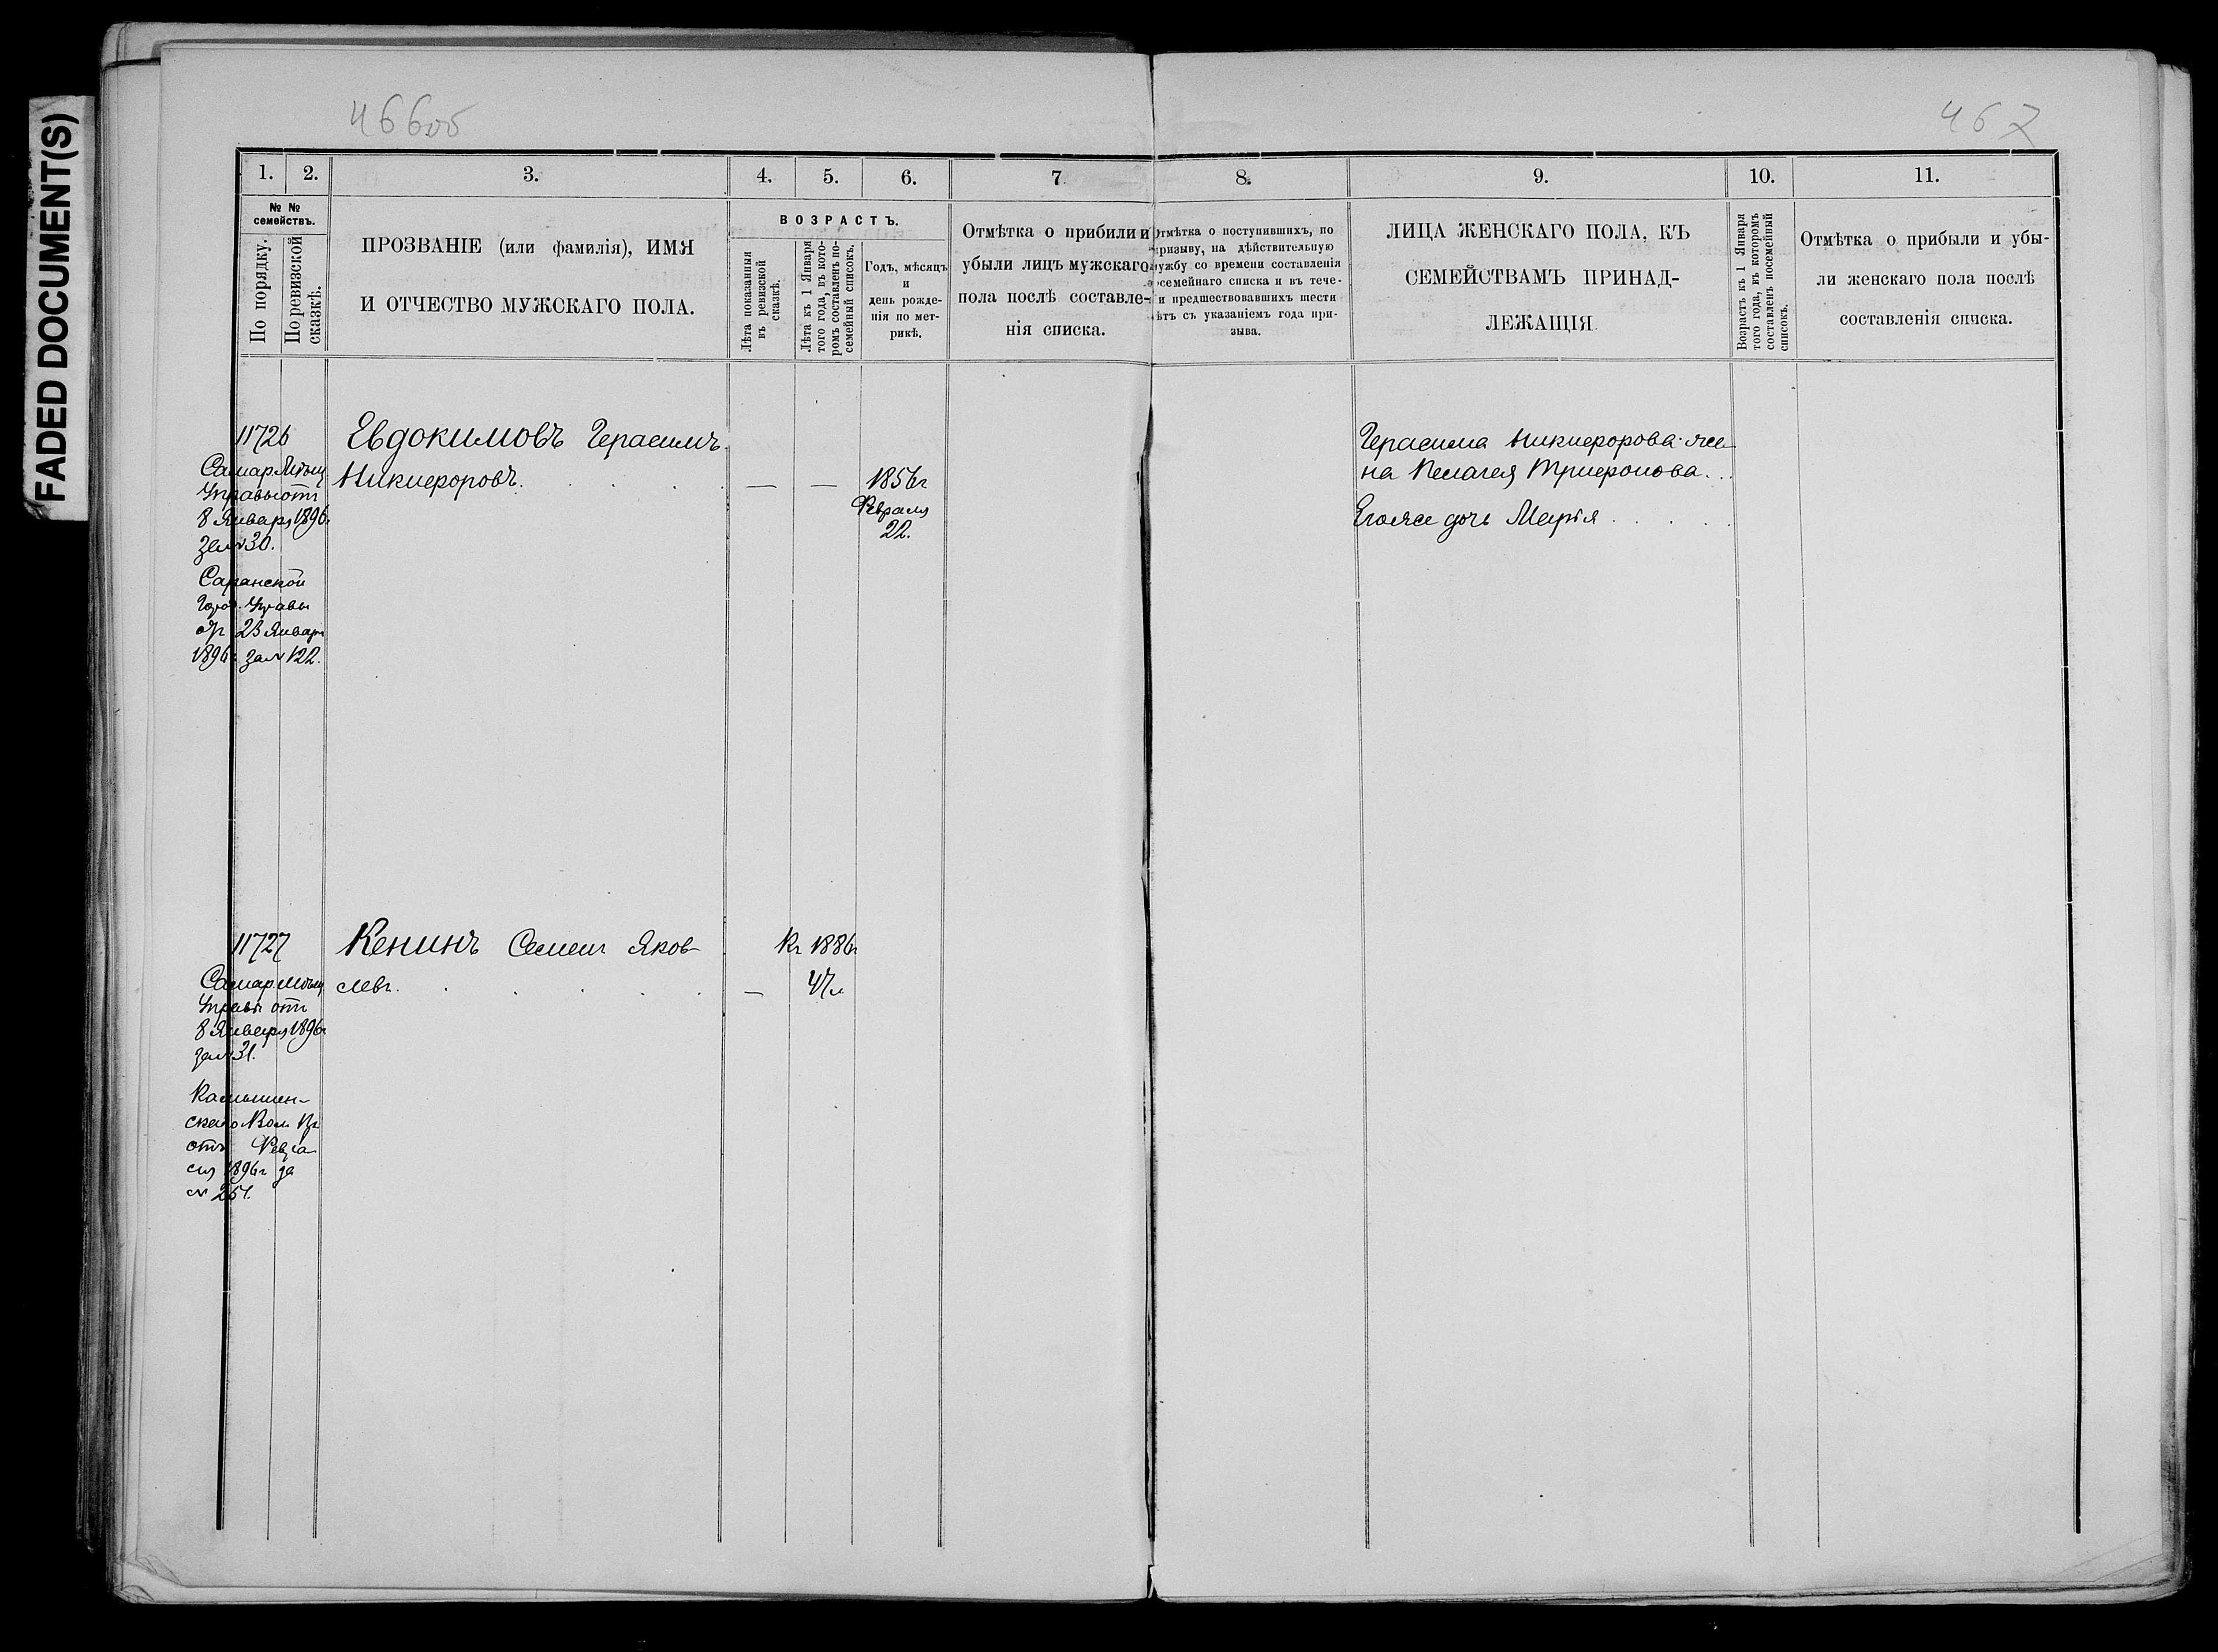 FADED DOCUMENT(S)
466об
467
1. 2. 3. 4. 5. 6. 7. 8. 9. 10. 11.
№ №
семействъ.
По порядку.
По ревизской
сказкѣ.
ПРОЗВАНІЕ (или фамилія), ИМЯ
И ОТЧЕСТВО МУЖСКАГО ПОЛА.
ВОЗРАСТЪ.
Лѣта показанныя
въ ревизской
сказкѣ.
Лѣта къ 1 Января
того года, въ кото-
ромъ составленъ по-
семейный списокъ.
Годъ, мѣсяцъ
и
день рожде-
нія по мет-
рикѣ.
Отмѣтка о прибили и
убыли лицъ мужскаго
пола послѣ составле-
нія списка.
Отмѣтка о поступившихъ, по
призыву, на дѣйствительную
ужбу со времени составленія
осемейнаго списка и въ тече-
и предшествовавшихъ шести
ѣтъ съ указаніемъ года при-
зыва.
ЛИЦА ЖЕНСКАГО ПОЛА, КЪ
СЕМЕЙСТВАМЪ ПРИНАД-
ЛЕЖАЩІЯ
Возрастъ къ 1 Января
того года, въ которомъ
составленъ посемейный
списокъ.
Отмѣтка о прибыли и убы-
ли женскаго пола послѣ
составленія списка.
11726
Самар. Мѣщ
Управы отъ
8 Января 1896г
за № 30.
Саранской
Город. Управы
от 23 Января
1896г за № 122.
Евдокимовъ Герасимъ
Никифоровъ. — — 1856г
Февраля
22.
Герасима Никифорова же-
на Пелагея Трифонова.
Егоже дочь Марія
11727
Самар. Мѣщ
Управы отъ
8 Января 1896г
за № 31.
Камышин-
скаго Вол. Пр
отъ Февра
ля 1896г за
№ 251.
Кенинъ Семенъ Яков
левъ. —
Къ 1886г
47л